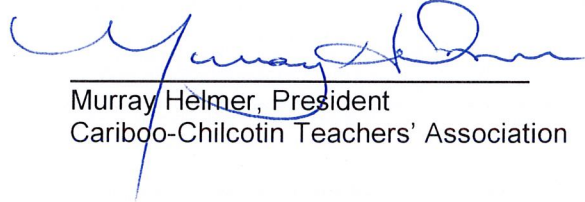 Murray Helmer
Murray Helmer, President
Cariboo-Chilcotin Teachers' Association